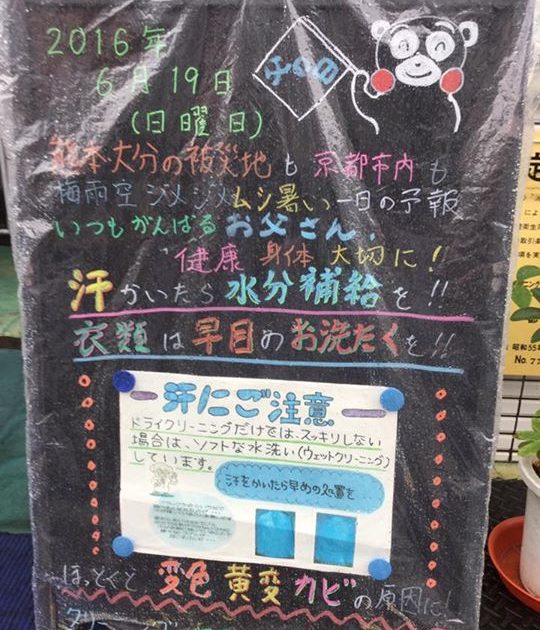 2016年
6月19日
(日曜日)
熊本大分の被災地も京都市内も
梅雨空ジメジメムシ暑い一日の予報
いつもがんばるお父さん、
健康 身体 大切に!
汗かいたら水分補給を!!
衣類は早目のお洗たくを!!
汗にご注意
ドライクリーニングだけでは、スッキリしない
場合は、ソフトな水洗い(ウェットクリーニング)
しています。
汗をかいたら早めの処置を
ほっとくと 変色 黄変 カビの原因に!
クリーニング
昭和55年